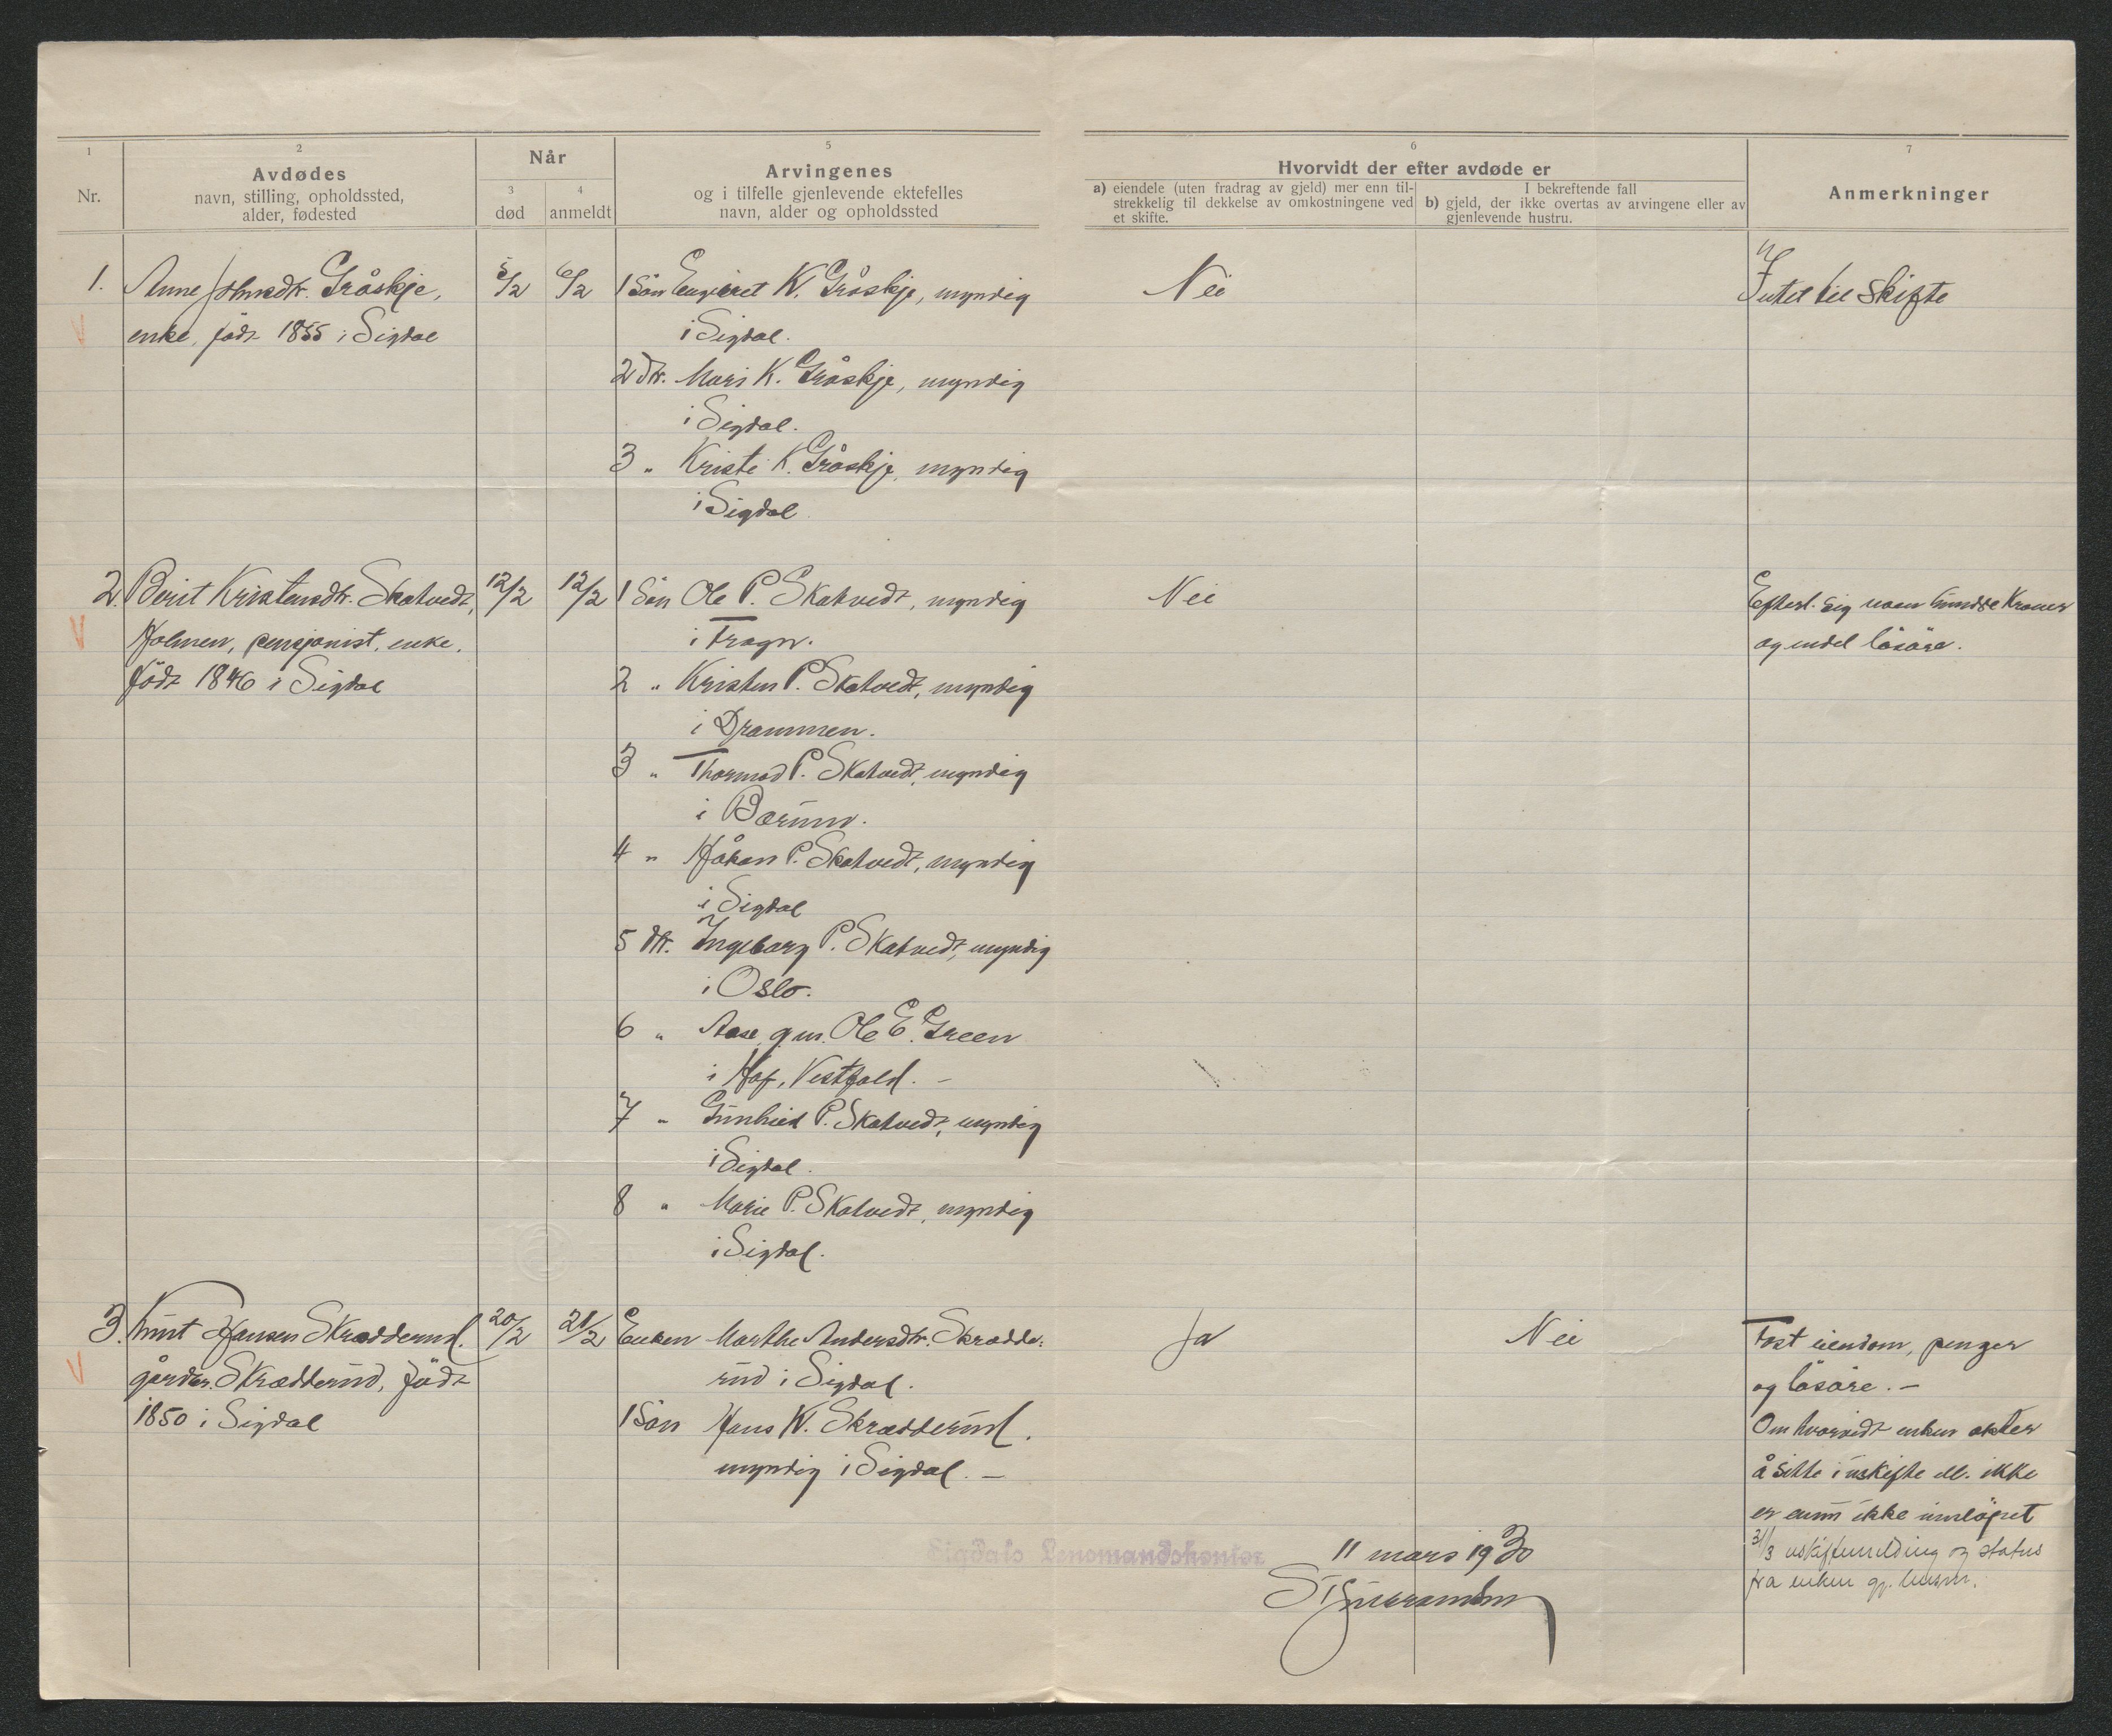 1
Nr.
2
Avdødes
navn, stilling, opholdssted,
alder, fødested
Når
3
død
4
anmeldt
5
Arvingenes
og i tilfelle gjenlevende ektefelles
navn, alder og opholdssted
6
Hvorvidt der efter avdøde er
a) eiendele (uten fradrag av gjeld) mer enn til-
strekkelig til dekkelse av omkostningene ved
et skifte.
I bekreftende fall
b) gjeld, der ikke overtas av arvingene eller av
gjenlevende hustru.
7
Anmerkninger
1. Anne Johnsdtr. Gråskje,
enke, født 1855 i Sigdal
5/2
6/2
1 Søn K. Gråskje, myndig
i Sigdal.
2 Dtr. Mari K. Gråskje, myndig
i Sigdal.
3 " Kristi K. Gråskje, myndig
i Sigdal
Nei
Intet til skifte
2. Berit Kristensdtr. Skatvedt,
Holmen, pensjonist, enke,
født 1846 i Sigdal
12/2
12/2
1 Søn Ole P. Skatvedt, myndig
i Frogn.
2 " Kristen P. Skatvedt, myndig
i Drammen.
3 " Thormod P. Skatvedt, myndig
i Bærum.
4 " Håkon P. Skatvedt, myndig
i Sigdal
5 dtr. Ingeborg P. Skatvedt, myndig
i Oslo.
6 " Aase, g.m. Ole E. Green
i Hof, Vestfold. -
7 " Gunhild P. Skatvedt, myndig
i Sigdal.
8 " Marie P. Skatvedt, myndig
i Sigdal.
Nei
Efterl. sig noen hundre Kroner
og endel løsøre.
3. Knut Hansen Skrædderud,
gårdbr. Skrædderud, født
1850 i Sigdal
20/2
21/2
Enken Marthe Andersdtr. Skrædde-
rud i Sigdal.
1 Søn Hans K. Skrædderud,
myndig i Sigdal. -
Ja
Nei
Fast eiendom, penger
og løsøre. -
Om hvorvidt enken akter
å sitte i uskifte el. ikke
er ennu ikke innløpet
21/3 uskiftemelding og status
fra enken
Sigdals Lensmandskontor
11 mars 1930